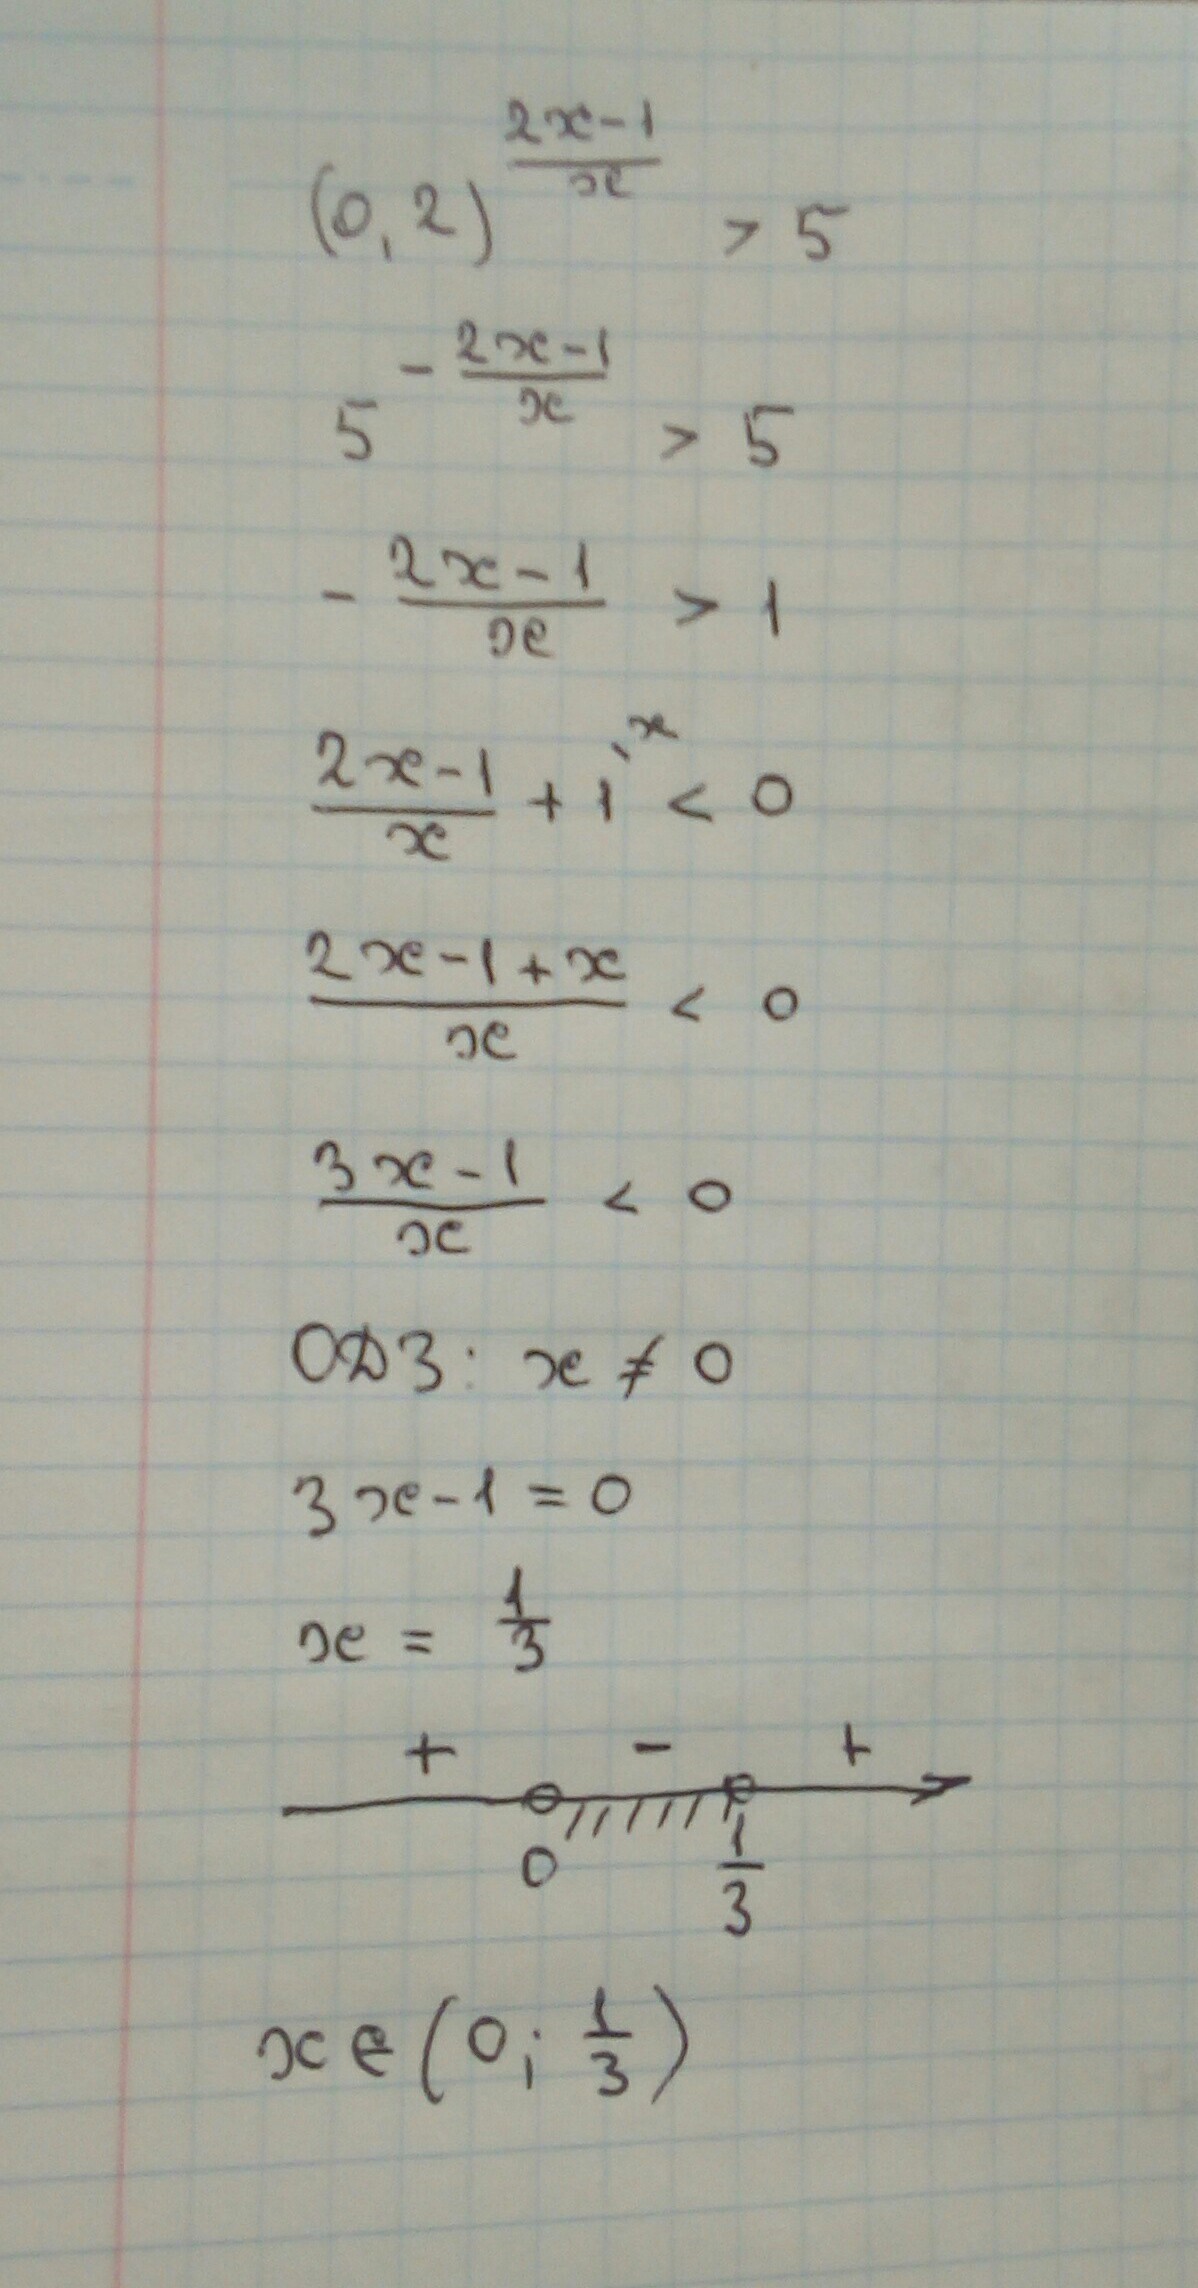 (0,2)^((2x-1)/x) > 5
5^(-(2x-1)/x) > 5
-(2x-1)/x > 1
(2x-1)/x + 1^(\x) < 0
(2x-1+x)/x < 0
(3x-1)/x < 0
ОДЗ: x ≠ 0
3x-1=0
x = 1/3
+ - +
0 1/3
x∈(0; 1/3)